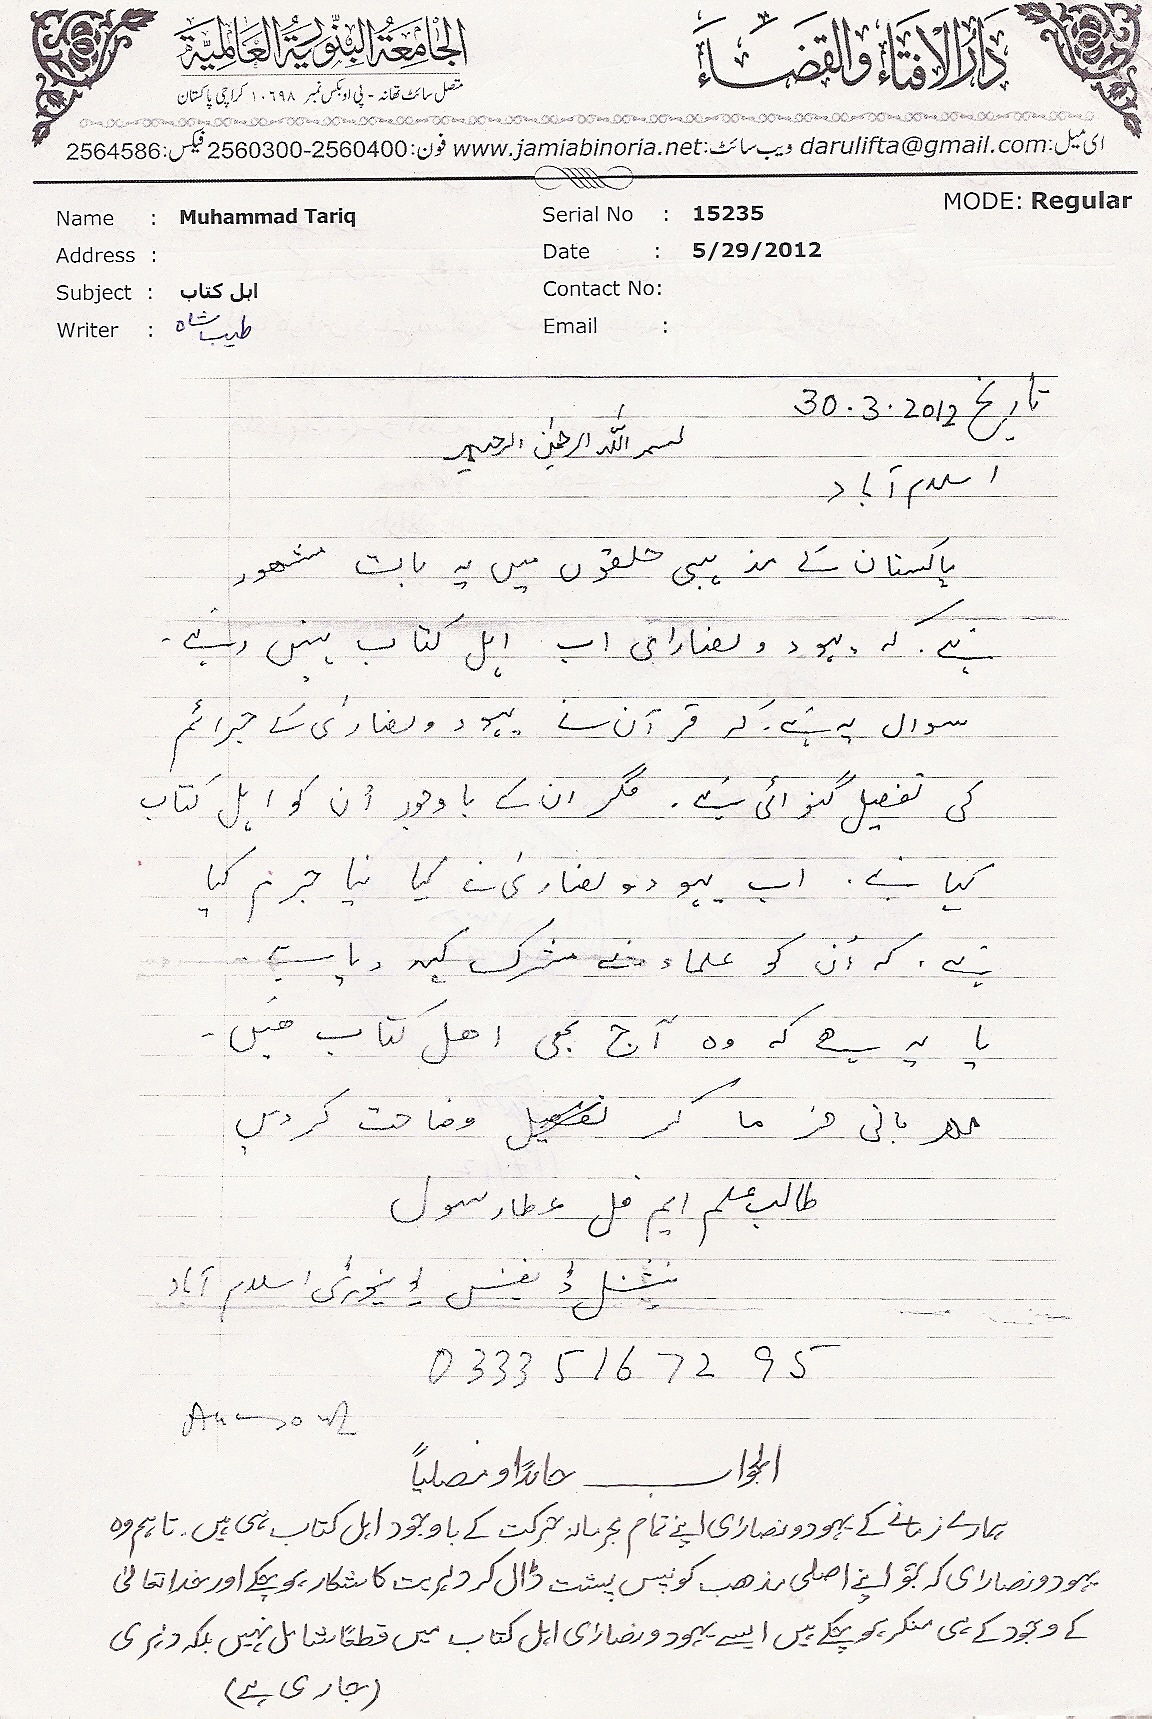 دارالافتاء والقضاء
الجامعۃ البنوریۃ العالمیۃ
متصل سائٹ تھانہ - پی او بکس نمبر ۱۰۶۹۸ کراچی پاکستان
ای میل:darulifta@gmail.com ویب سائٹ:www.jamiabinoria.net فون:2560300-2560400 فیکس:2564586
MODE: Regular
Name : Muhammad Tariq
Serial No : 15235
Address :
Date : 5/29/2012
Subject : اہل کتاب
Contact No:
Writer : طیب شاہ
Email :
تاریخ 30.3.2012
بسم اللہ الرحمٰن الرحیم
اسلام آباد
پاکستان کے مذہبی حلقوں میں یہ بات مشہور
ہے. کہ یہود و نصارٰی اب اہل کتاب نہیں رہے-
سوال یہ ہے. کہ قرآن نے یہود و نصارٰی کے جرائم
کی تفصیل گنوائی ہے. مگر ان کے باوجود اُن کو اہل کتاب
کہا ہے. اب یہود و نصارٰی نے کیا نیا جرم کیا
ہے. کہ اُن کو علماء نے مشرک کہہ دیا ہے
یا یہ ہے کہ وہ آج بھی اھل کتاب ھیں-
مہربانی فرما کر وضاحت کردیں
طالب علم ایم فل عطا رسول
نیشنل ڈیفینس یونیورسٹی اسلام آباد
0333 5167295
الجواب حامداً و مصلیاً
ہمارے زمانے کے یہود و نصارٰی اپنے تمام مجرمانہ حرکت کے باوجود اہل کتاب ہی ہیں. تاہم وہ
یہود و نصارٰی کہ جو اپنے اصلی مذھب کو پس پشت ڈال کر دہریت کا شکار ہو چکے اور خدا تعالیٰ
کے وجود کے ہی منکر ہو چکے ہیں ایسے یہود و نصارٰی اہل کتاب میں قطعاً شامل نہیں بلکہ دہری
(جاری ہے)